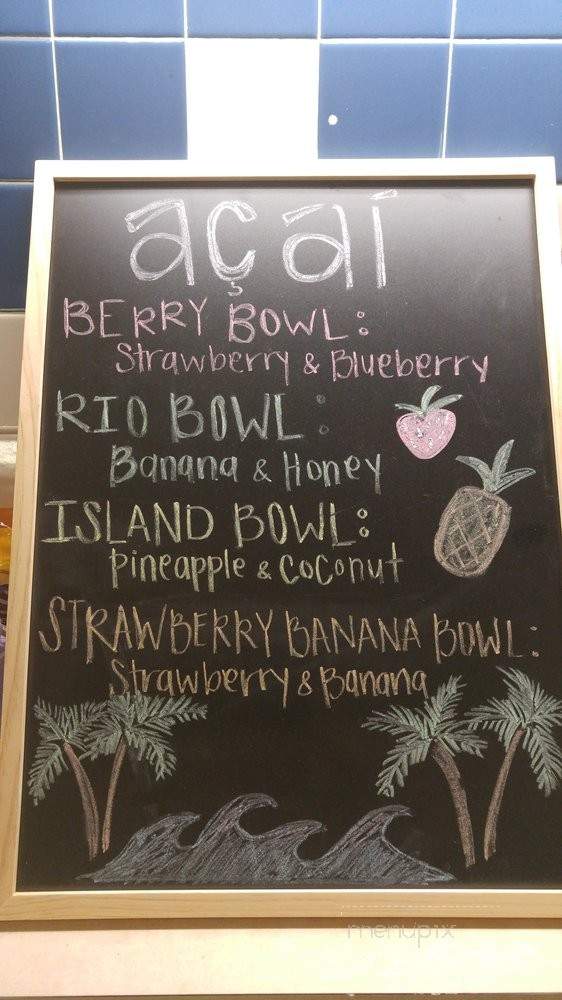 açaí
BERRY BOWL:
Strawberry & Blueberry
RIO BOWL:
Banana & Honey
ISLAND BOWL:
Pineapple & Coconut
STRAWBERRY BANANA BOWL:
Strawberry & Banana
menupix